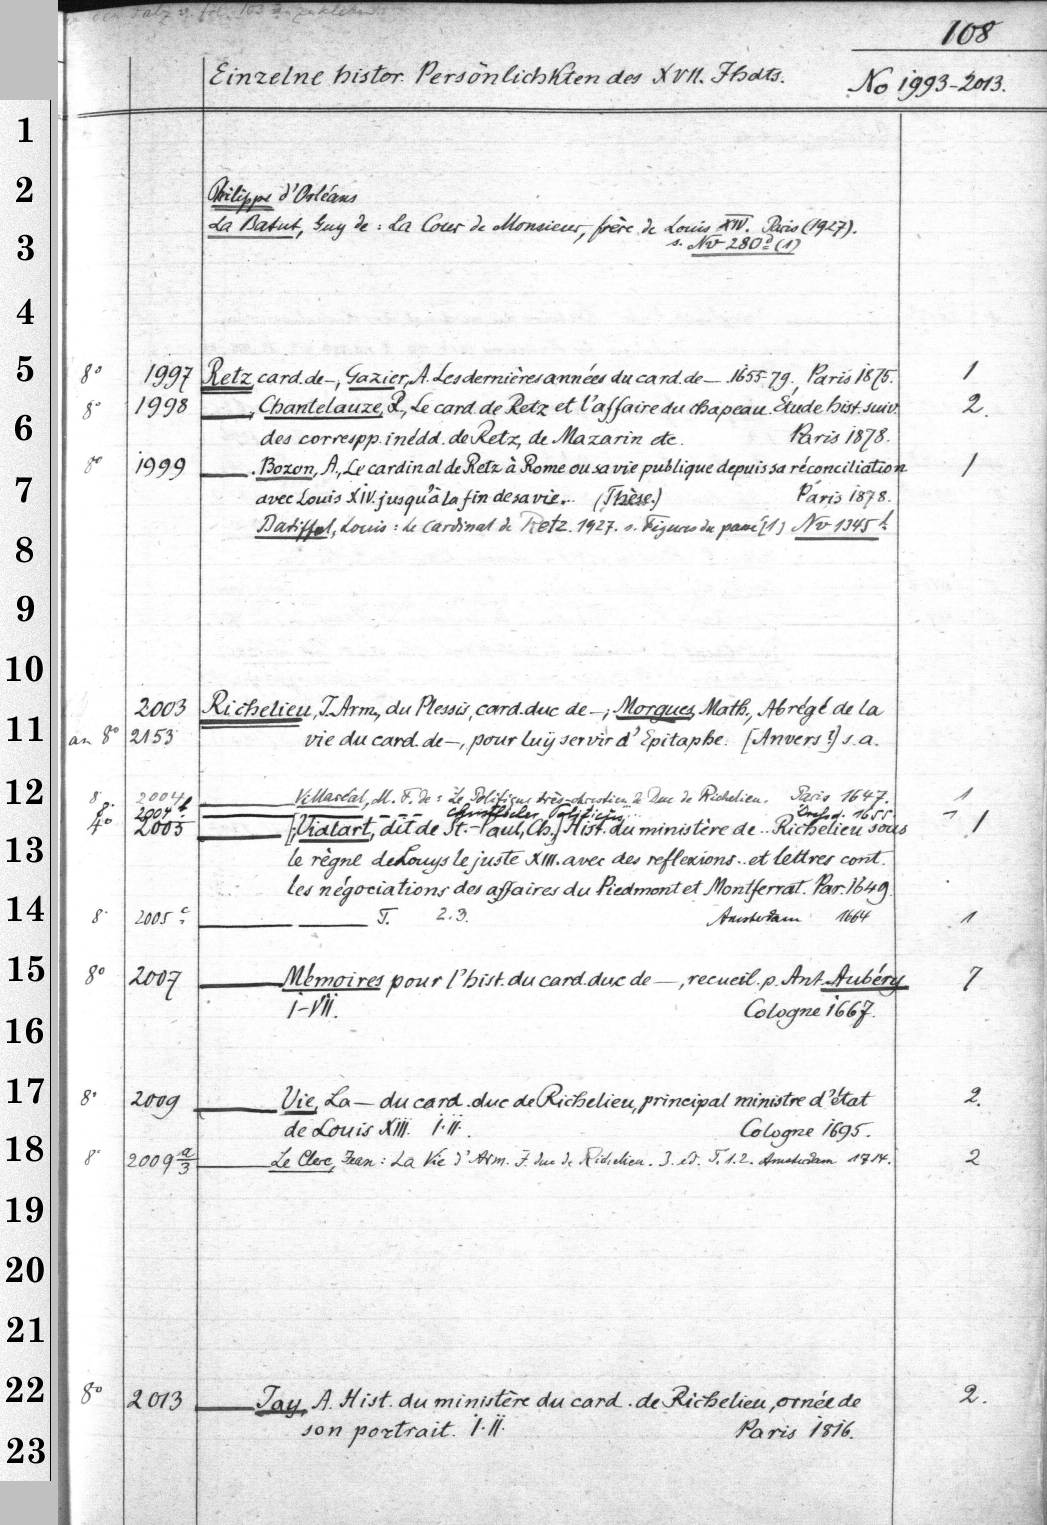 108
Einzelne histor. Persönlichkten des XVII. Jhdts. No 1993-2013.
1
2
3
4
5
6
7
8
9
10
11
12
13
14
15
16
17
18
19
20
21
22
23
Philippe d'Orléans
La Batut, Guy de: La Cour de Monsieur, frère de Louis XIV. Paris (1927).
s. Nv 280 (1)
8° 1997 Retz, card. de—, Gazier, A. Les dernières années du card. de— 1655-79. Paris 1875. 1
8° 1998 —, Chantelauze, R., Le card. de Retz et l'affaire du chapeau. Étude hist. suiv. 2.
des correspp. inédd. de Retz, de Mazarin etc. Paris 1878.
8° 1999 —. Bozon, A., Le cardinal de Retz à Rome ou sa vie publique depuis sa réconciliation 1
avec Louis XIV. jusqu'à la fin de sa vie.. (Thèse.) Paris 1878.
Batiffol, Louis: Le Cardinal de Retz. 1927. s. Figures du passé [1] Nv 1345
2003 Richelieu, J. Arm. du Plessis, card. duc de—; Morgues, Math., Abrégé de la
an 8° 2153 vie du card. de—, pour luÿ servir d'Epitaphe. [Anvers?] s. a.
8. 2004 — Villaréal, M. F. de: Le Politique très-chrestien de Duc de Richelieu. Paris 1647. 1
8. 2004 — Christlicher Politicus 1655. 1
4° 2005 — [Vialart, dit de St.-Paul, Ch.] Hist. du ministère de .. Richelieu sous 1
le règne de Louys le juste XIII. avec des reflexions .. et lettres cont.
les négociations des affaires du Piedmont et Montferrat. Par. 1649.
8. 2005 c — — T. 2.3. Amsterdam 1664 1
8° 2007 — Mémoires pour l'hist. du card. duc de —, recueil. p. Ant. Aubéry 7
I-VII. Cologne 1667.
8° 2009 — Vie, La — du card. duc de Richelieu, principal ministre d'état 2.
de Louis XIII. I.II. Cologne 1695.
8° 2009 a/3 — Le Clerc, Jean: La Vie d'Arm. J. duc de Richelieu. 3. éd. T. 1.2. Amsterdam 1714. 2
8° 2013 — Jay, A. Hist. du ministère du card. de Richelieu, ornée de 2.
son portrait. I.II. Paris 1816.